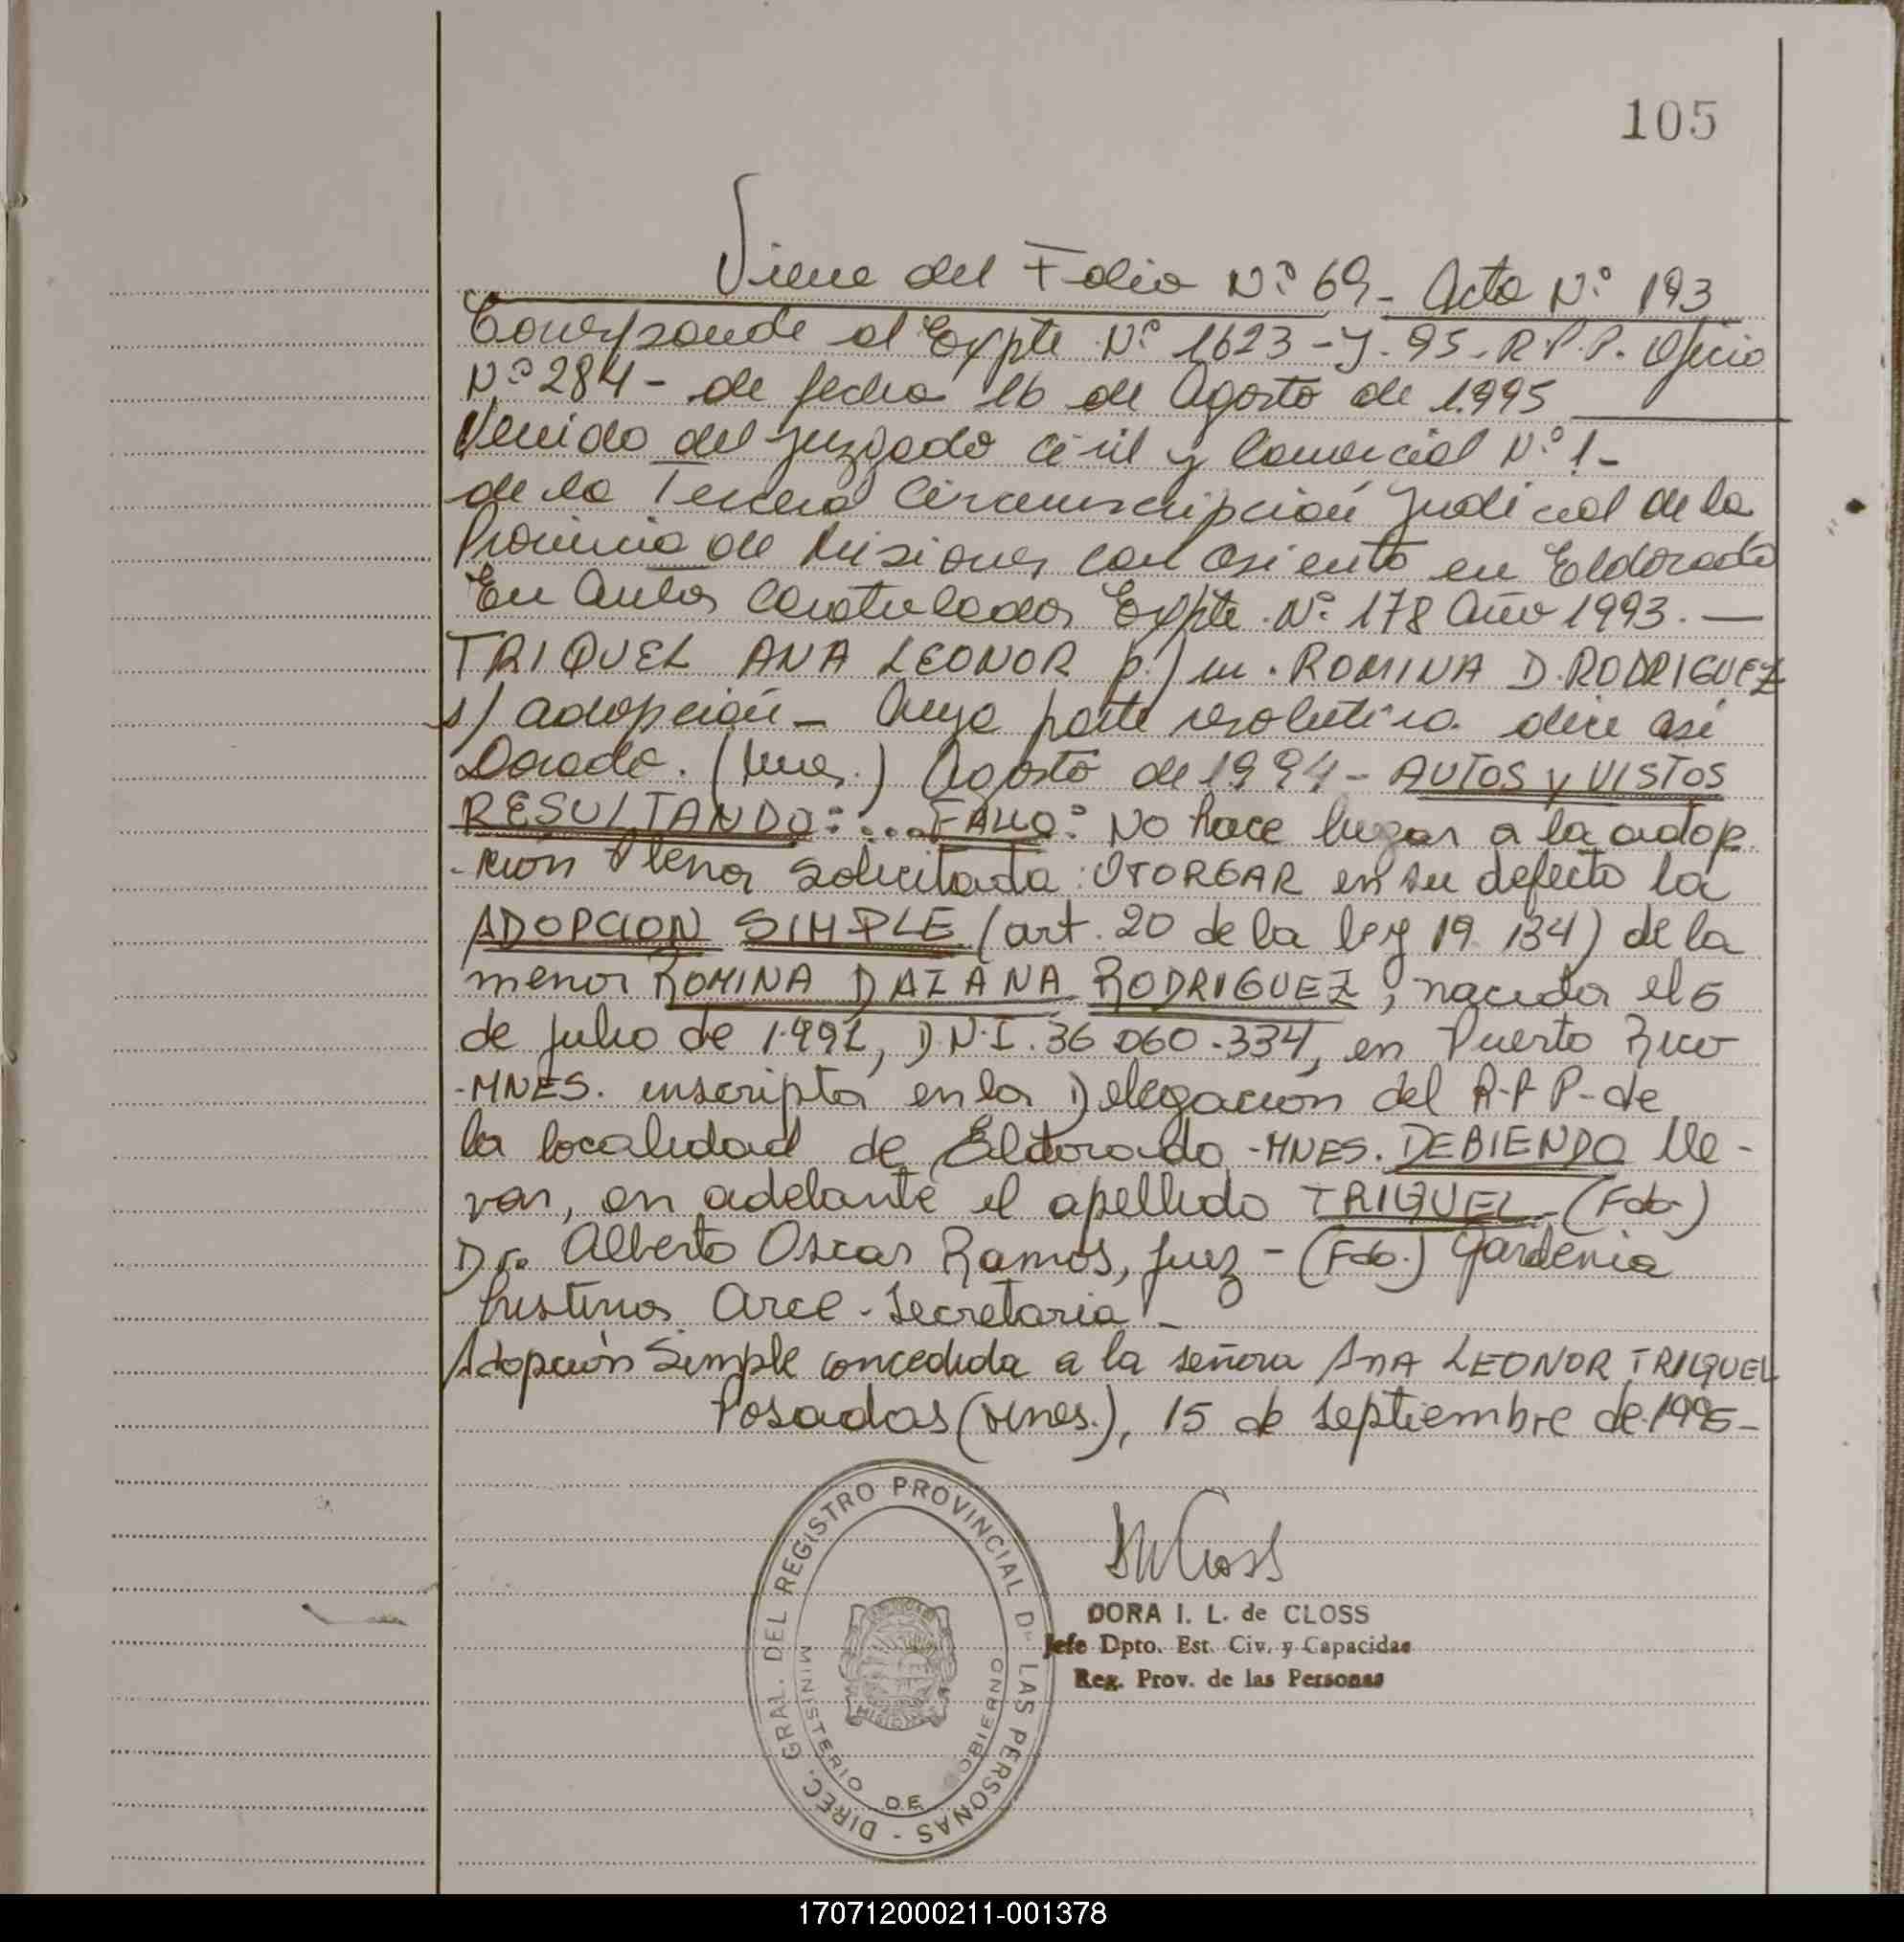 105
Viene del Folio Nº 69- Acta Nº 193
Corresponde al Expte Nº 1623-J-95-R.P.P. Oficio
Nº 284- de fecha 16 de Agosto de 1.995
Venido del Juzgado Civil y Comercial Nº 1-
de la Tercera Circunscripción Judicial de la
Provincia de Misiones con asiento en Eldorado
En Autos Caratulados Expte. Nº 178 Año 1993.—
TRIQUEL ANA LEONOR p.) m. ROMINA D. RODRIGUEZ
s/ adopción- Cuya parte resolutiva dice así
Dorado. (Mnes.) Agosto de 1994- AUTOS y VISTOS
RESULTANDO:...FALLO: No hace lugar a la adop
-ción Plena solicitada: OTORGAR en su defecto la
ADOPCION SIMPLE (art. 20 de la ley 19.134) de la
menor ROMINA DAIANA RODRIGUEZ, nacida el 5
de julio de 1.991, D.N.I. 36.060.334, en Puerto Rico
-MNES. inscripta en la Delegación del R.P.P-de
la localidad de Eldorado-MNES. DEBIENDO lle-
var, en adelante el apellido TRIQUEL-(Fdo.)
Dr. Alberto Oscar Ramos, Juez-(Fdo.) Gardenia
Cristina Arce-Secretaria-
Adopción Simple concedida a la señora ANA LEONOR TRIQUEL
Posadas (Mnes.), 15 de septiembre de 1995-
DIREC. GRAL. DEL REGISTRO PROVINCIAL DE LAS PERSONAS -
MINISTERIO DE GOBIERNO
MISIONES
DORA I. L. de CLOSS
Jefe Dpto. Est. Civ. y Capacidad
Reg. Prov. de las Personas
170712000211-001378